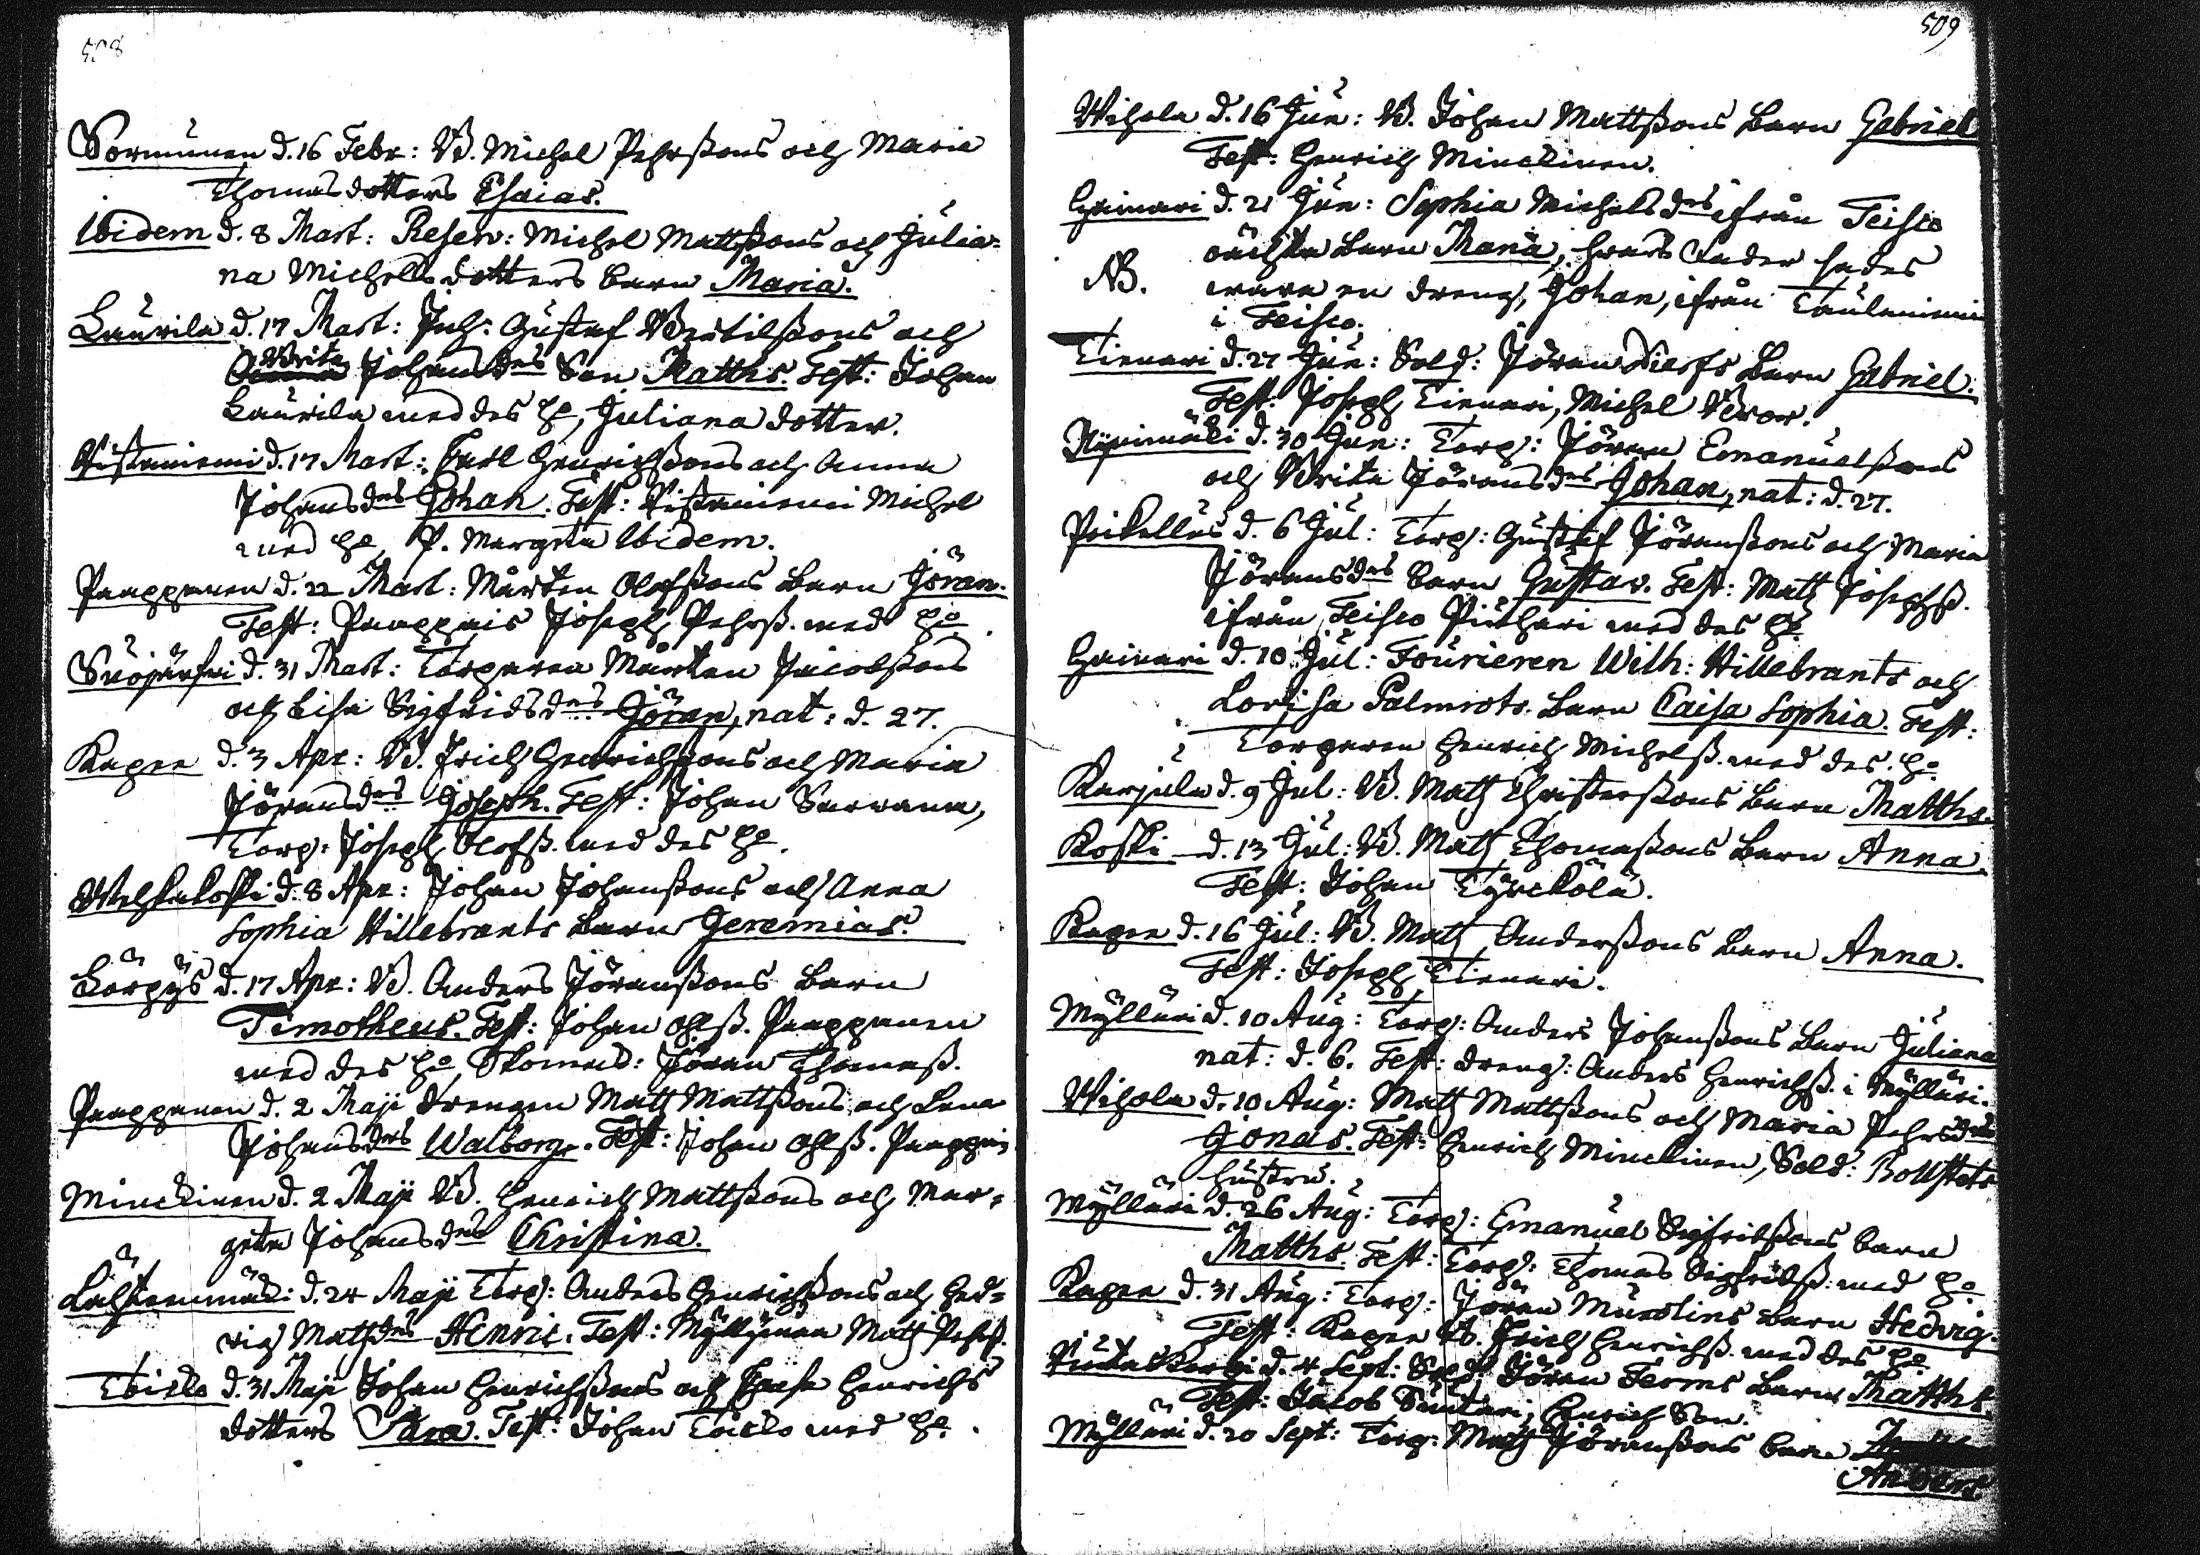 508
Sormunen d. 16 Febr: B. Michel Pehrßons och Maria
Thomasdotters Esaias.
Ibidem d. 8 Mart: Reserv: Michel Mattßons och Julia-
na Michelsdotters barn Maria.
Laurila d. 17 Mart: Inh: Gustaf Bertilßons och
Brita Johansdrs Son Matths. Test: Johan
Laurila med des ho, Juliana dotter.
d. 17 Mart: Carl Henrichßons och Anna
Johansdrs Johan. Test: Michel
med ho, P. Margeta Ibidem.
Paappanen d. 22 Mart: Mårten Olofßons barn Jöran.
Test: Paappais Joseph Pehrß. med ho.
Suojärfvi d. 31 Mart: Torparen Mårten Jacobßons
och Lisa Sigfridsdrs Jöran, nat: d. 27.
Kapee d. 3 Apr: B. Erich Henrichßons och Maria
Jöransdrs Joseph. Test: Johan
Torp: Joseph Olofß. med des ho.
d. 8 Apr: Johan Johanßons och Anna
Sophia Hillebrants barn Jeremias.
Lörpys d. 17 Apr: B. Anders Jöranßons barn
Timotheus. Test: Johan Ohlß. Paappanen
med des ho, Skomak: Jöran Thomaß.
Paappanen d. 2 Maji drengen Matts Mattßons och Lena
Johansdrs Walborg. Test: Johan Ohlß. Paappais
Minckinen d. 2 Maji B. Henrich Mattßons och Mar-
geta Johansdrs Christina.
Lähteenmäki: d. 24 Maji Torp: Anders Henrichßons och Hed-
vig Matsdrs Henric. Test: Matts Pehrß.
d. 31 Maji Johan Henrichßons och Henrichs
dotters Sara. Test: Johan med ho.
509
Wihola d. 16 Jun: B. Johan Mattßons barn Gabriel
Test: Henrich Minckinen.
Heinari d. 21 Jun: Sophia Michelsdrs ifrån Teisco
oächta barn Maria, hvars fader sades
NB. wara en dreng, Johan, ifrån Taulaniemi
i Teisco.
Tienari d. 27 Jun: Sold: Jöran barn Gabriel.
Test: Joseph Tienari, Michel
d. 30 Jun: Torp: Jöran Emanuelßons
och Brita Jöransdrs Johan, nat: d. 27.
d. 6 Jul: Torp: Gustaf Jöranßons och Maria
Jöransdrs barn Gustav. Test: Matts Josephß.
ifrån Teisco med des ho
Heinari d. 10 Jul: Fourieren Wilh: Hillebrants och
Lovisa Palmrots barn Caisa Sophia. Test:
Torparen Henrich Michelß. med des ho
Karjula d. 9 Jul: B. Matts Christerßons barn Matths.
Koski d. 13 Jul: B. Matts Thomaßons barn Anna.
Test: Johan Tyrckölä.
Kapee d. 16 Jul: B. Matts Anderßons barn Anna.
Test: Joseph Tienari.
Mylläri d. 10 Aug: Torp: Anders Johanßons barn Juliana
nat: d. 6. Test: dreng: Anders Henrichß. i Mylläri.
Wihola d. 10 Aug: Matts Mattßons och Maria Pehrsdrs
Jonas. Test: Henrich Minckinen, Sold: Bollstets
hustru.
Mylläri d. 26 Aug: Torp: Emanuel Sigfridßons barn
Matths. Test: Torp: Thomas Sigfridß. med ho
Kapee d. 31 Aug: Torp: Jöran barn Hedvig.
Test: Kapee B. Erich Henrichß. med des ho.
d. 4 Sept: Sold: Jöran Ferms barn Matths.
Test: Jacob Suutari, Henrich Son.
Mylläri d. 20 Sept: Torp: Matts Jöranßons barn
Anders.